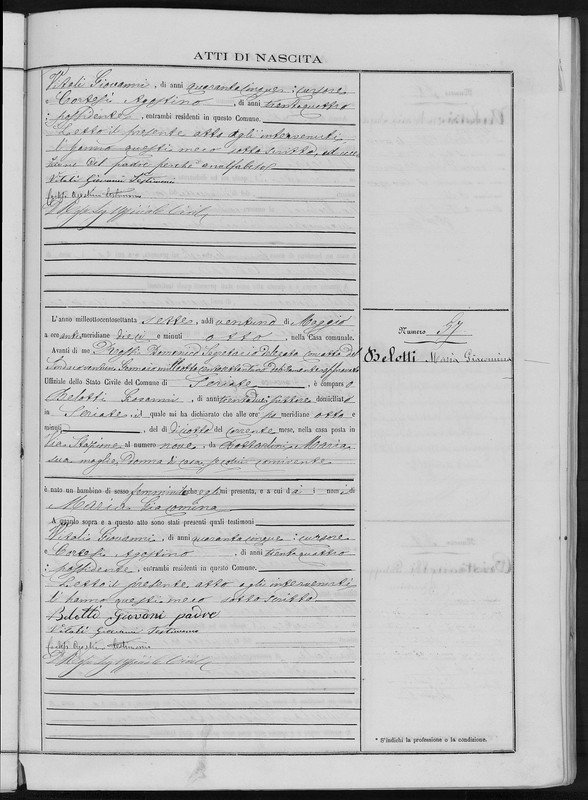 ATTI DI NASCITA
Vitali Giovanni, di anni quarantacinque: cursore
e Cortesi Agostino, di anni trentaquattro
: possidente, entrambi residenti in questo Comune.
Letto il presente atto agli intervenuti
li hanno questi meco sottoscritto, ad ecce
zione del padre perchè analfabeta
Vitali Giovanni Testimonio
Cortesi Agostino testimonio
Uffiziale Civile
L'anno milleottocentosettanta sette, addì ventuno di Maggio
a ore anti meridiane dieci e minuti otto, nella Casa comunale.
Avanti di me Domenico Segretario delegato con atto del
Gennaio milleottocento debitamente approvato
Uffiziale dello Stato Civile del Comune di Seriate, è comparso
Belotti Giovanni, di anni trentadue: domiciliato
in Seriate, il quale mi ha dichiarato che alle ore meridiane otto e
minuti, del dì diciotto del corrente mese, nella casa posta in
Via Stazione al numero nove, da Maria
sua moglie donna di casa, seco lui convivente
è nato un bambino di sesso femminile che egli mi presenta, e a cui dà i nomi di
Maria Giacomina
A quanto sopra e a questo atto sono stati presenti quali testimoni
Vitali Giovanni, di anni quarantacinque: cursore
e Cortesi Agostino, di anni trentaquattro
: possidente, entrambi residenti in questo Comune.
Letto il presente atto agli intervenuti
li hanno questi meco sottoscritto
Belotti Giovani padre
Vitali Giovanni Testimonio
Cortesi Agostino testimonio
Uffiziale Civile
Numero 57
Belotti Maria Giacomina
* S'indichi la professione o la condizione.